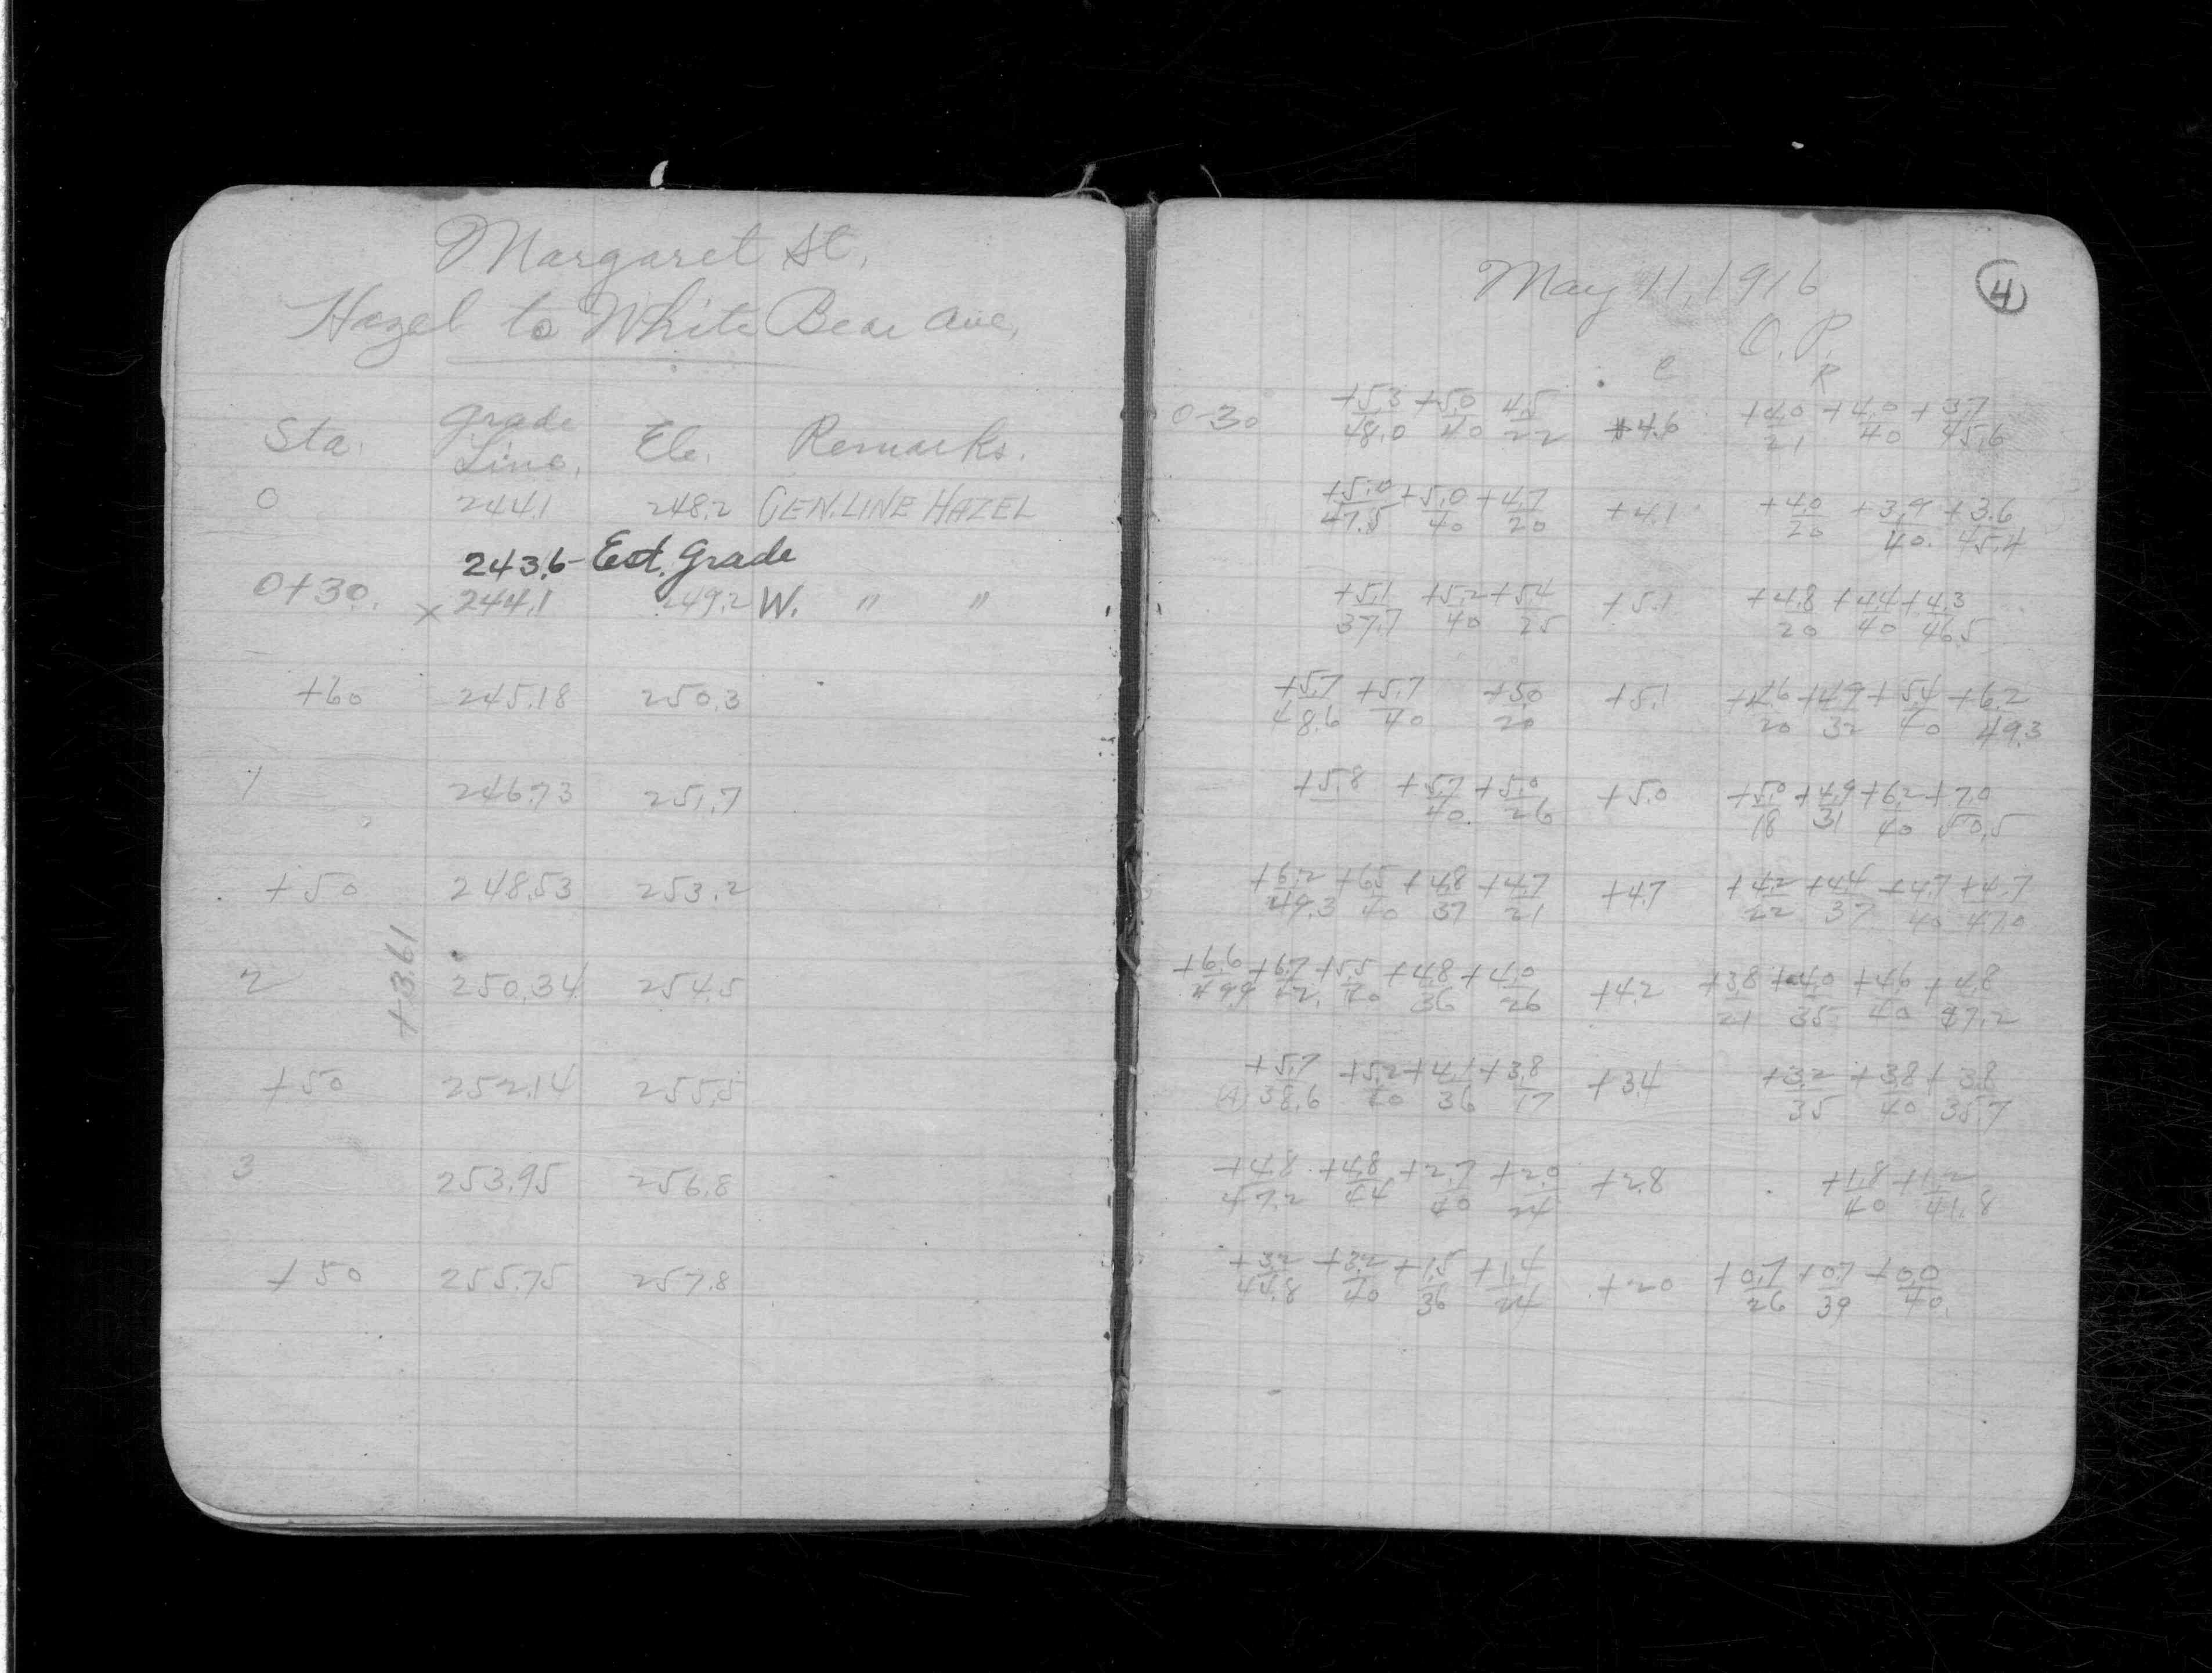 Margaret St.
Hazel to White Bear Ave.
Sta. Grade Line. Ele. Remarks.
0 244.1 248.2 CEN. LINE HAZEL
243.6 - Est. Grade
0+30. x 244.1 249.2 W. " "
+60 245.18 250.3
1 246.73 251.7
+50 248.53 253.2
+3.61
2 250.34 254.5
+50 252.14 255.5
3 253.95 256.8
+50 255.75 257.8
May 11, 1916
4
O. P.
C R
0-30 +5.3 +5.0 4.5 +4.6 +4.0 +4.0 +3.7
48.0 40 22 21 40 45.6
+5.0 +5.0 +4.7 +4.1 +4.0 +3.9 +3.6
47.5 40 20 20 40. 45.4
+5.1 +5.2 +5.4 +5.1 +4.8 +4.4 +4.3
37.7 40 25 20 40 46.5
+5.7 +5.7 +5.0 +5.1 +4.6 +4.9 +5.4 +6.2
48.6 40 20 20 32 40 49.3
+5.8 +5.7 +5.0 +5.0 +5.0 +4.9 +6.2 +7.0
40. 26 18 31 40 50.5
+6.2 +6.5 +4.8 +4.7 +4.7 +4.2 +4.4 +4.7 +4.7
49.3 40 37 21 22 37 40 47.0
+6.6 +6.7 +5.5 +4.8 +4.0 +4.2 +3.8 +4.0 +4.6 +4.8
49.9 42. 40 36 26 21 35 40 47.2
+5.7 +5.2 +4.1 +3.8 +3.4 +3.2 +3.8 +3.8
38.6 40 36 17 35 40 35.7
+4.8 +4.8 +2.7 +2.0 +2.8 +1.8 +1.2
47.2 44 40 24 40 41.8
+3.2 +3.2 +1.5 +1.4 +2.0 +0.7 +0.7 +0.0
44.8 40 36 24 26 39 40.